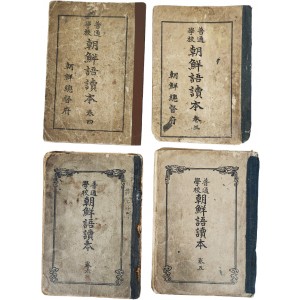 普通學校 朝鮮語讀本 卷四
朝鮮總督府
普通學校 朝鮮語讀本 卷三
朝鮮總督府
普通學校 朝鮮語讀本 卷
普通學校 朝鮮語讀本 卷五